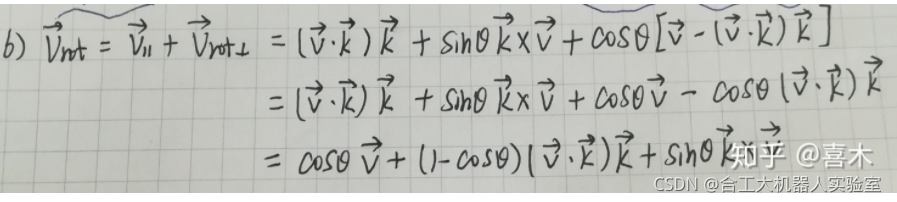 b) v⃗rot = v⃗∥ + v⃗rot⊥ = (v⃗·k⃗)k⃗ + sinθ k⃗×v⃗ + cosθ[v⃗ - (v⃗·k⃗)k⃗]
= (v⃗·k⃗)k⃗ + sinθ k⃗×v⃗ + cosθ v⃗ - cosθ (v⃗·k⃗)k⃗
= cosθ v⃗ + (1-cosθ)(v⃗·k⃗)k⃗ + sinθ k⃗×v⃗
知乎 @喜木
CSDN @合工大机器人实验室